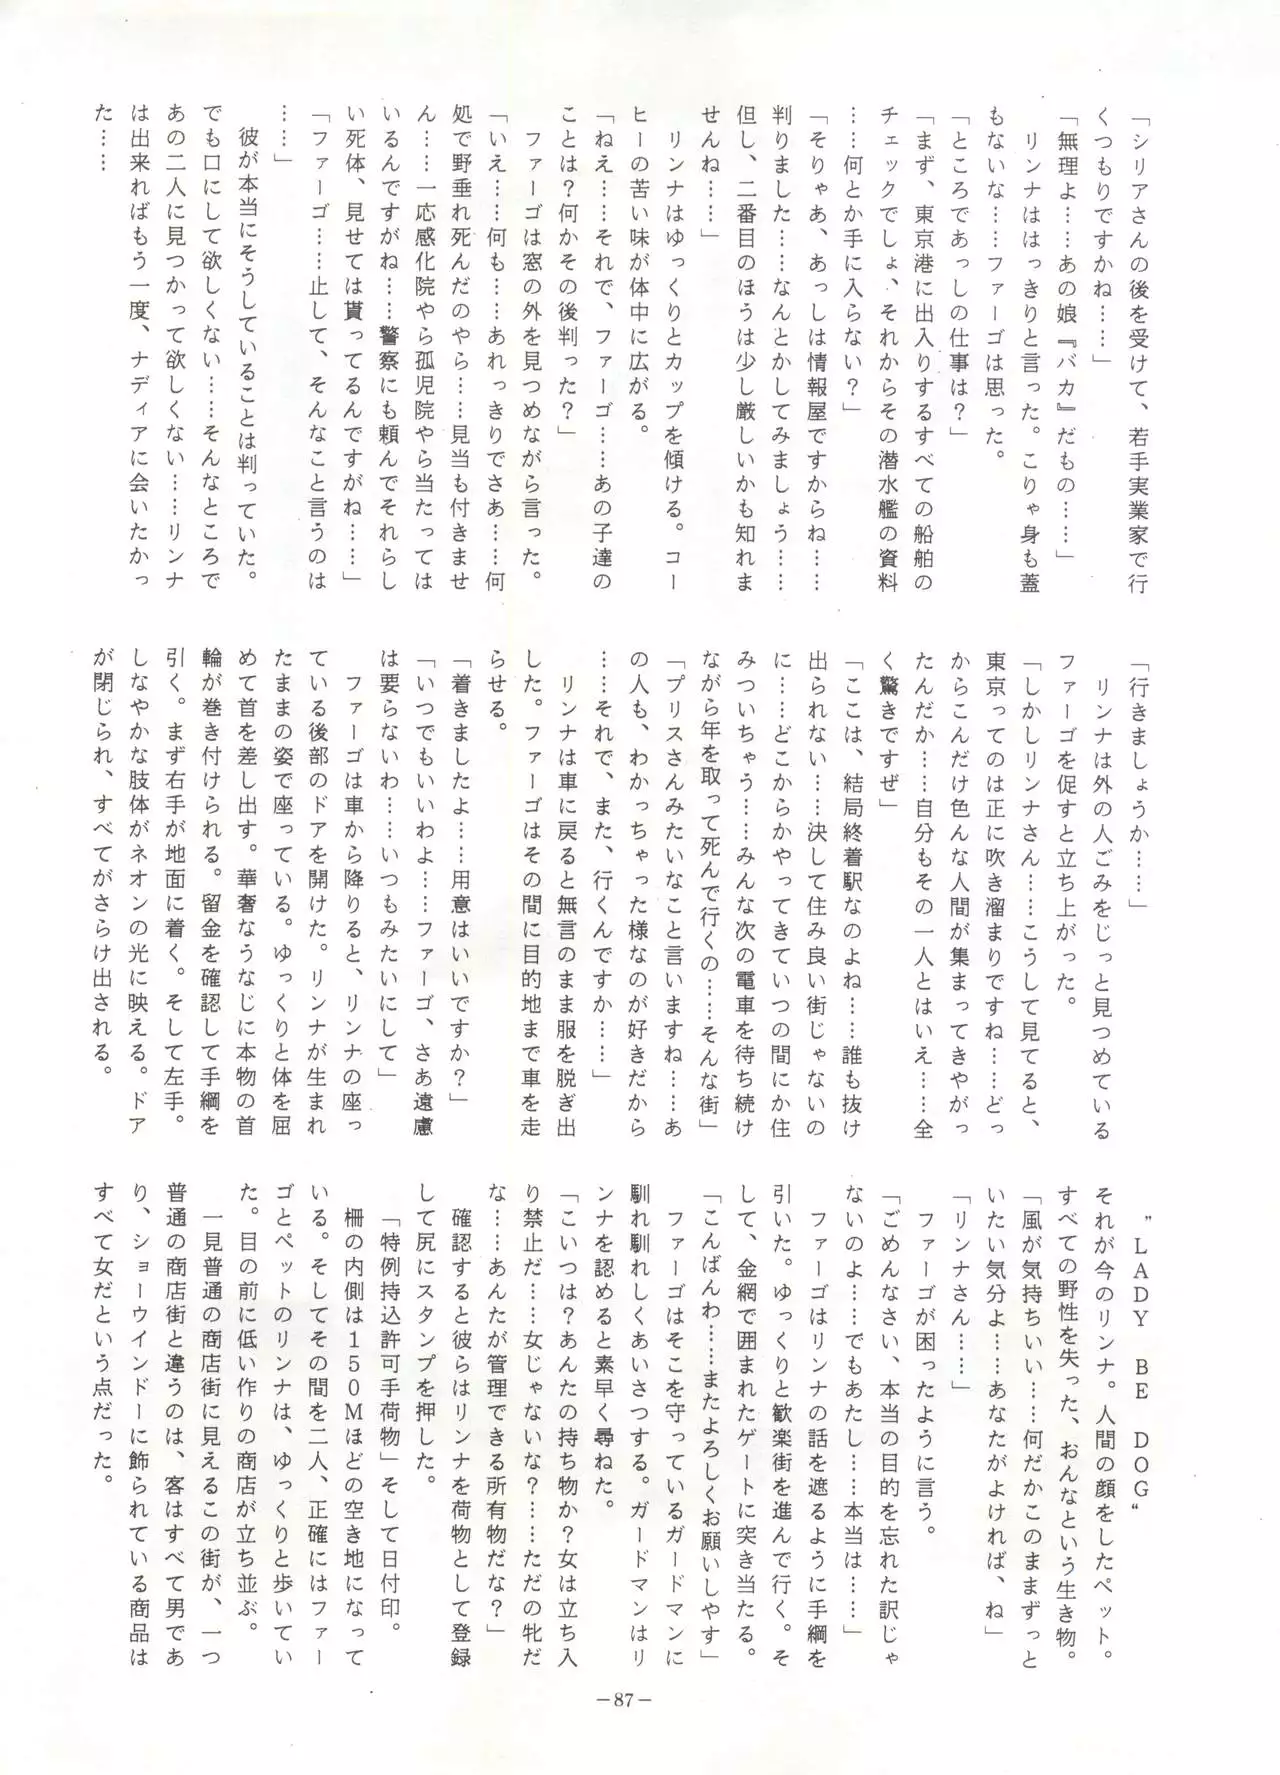 「シリアさんの後を受けて、若手実業家で行
くつもりですかね……」
「無理よ……あの娘『バカ』だもの……」
　リンナははっきりと言った。こりゃ身も蓋
もないな……ファーゴは思った。
「ところであっしの仕事は？」
「まず、東京港に出入りするすべての船舶の
チェックでしょ、それからその潜水艦の資料
……何とか手に入らない？」
「そりゃあ、あっしは情報屋ですからね……
判りました……なんとかしてみましょう……
但し、二番目のほうは少し厳しいかも知れま
せんね……」
　リンナはゆっくりとカップを傾ける。コー
ヒーの苦い味が体中に広がる。
「ねえ……それで、ファーゴ……あの子達の
ことは？何かその後判った？」
　ファーゴは窓の外を見つめながら言った。
「いえ……何も……あれっきりでさあ……何
処で野垂れ死んだのやら……見当も付きませ
ん……一応感化院やら孤児院やら当たっては
いるんですがね……警察にも頼んでそれらし
い死体、見せては貰ってるんですがね……」
「ファーゴ……止して、そんなこと言うのは
……」
　彼が本当にそうしていることは判っていた。
でも口にして欲しくない……そんなところで
あの二人に見つかって欲しくない……リンナ
は出来ればもう一度、ナディアに会いたかっ
た……
「行きましょうか……」
　リンナは外の人ごみをじっと見つめている
ファーゴを促すと立ち上がった。
「しかしリンナさん……こうして見てると、
東京ってのは正に吹き溜まりですね……どっ
からこんだけ色んな人間が集まってきやがっ
たんだか……自分もその一人とはいえ……全
く驚きですぜ」
「ここは、結局終着駅なのよね……誰も抜け
出られない……決して住み良い街じゃないの
に……どこからかやってきていつの間にか住
みついちゃう……みんな次の電車を待ち続け
ながら年を取って死んで行くの……そんな街」
「プリスさんみたいなこと言いますね……あ
の人も、わかっちゃった様なのが好きだから
……それで、また、行くんですか……」
　リンナは車に戻ると無言のまま服を脱ぎ出
した。ファーゴはその間に目的地まで車を走
らせる。
「着きましたよ……用意はいいですか？」
「いつでもいいわよ……ファーゴ、さあ遠慮
は要らないわ……いつもみたいにして」
　ファーゴは車から降りると、リンナの座っ
ている後部のドアを開けた。リンナが生まれ
たままの姿で座っている。ゆっくりと体を屈
めて首を差し出す。華奢なうなじに本物の首
輪が巻き付けられる。留金を確認して手綱を
引く。まず右手が地面に着く。そして左手。
しなやかな肢体がネオンの光に映える。ドア
が閉じられ、すべてがさらけ出される。
　”LADY　BE　DOG“
それが今のリンナ。人間の顔をしたペット。
すべての野性を失った、おんなという生き物。
「風が気持ちいい……何だかこのままずっと
いたい気分よ……あなたがよければ、ね」
「リンナさん……」
　ファーゴが困ったように言う。
「ごめんなさい、本当の目的を忘れた訳じゃ
ないのよ……でもあたし……本当は……」
　ファーゴはリンナの話を遮るように手綱を
引いた。ゆっくりと歓楽街を進んで行く。そ
して、金網で囲まれたゲートに突き当たる。
「こんばんわ……またよろしくお願いしやす」
　ファーゴはそこを守っているガードマンに
馴れ馴れしくあいさつする。ガードマンはリ
ンナを認めると素早く尋ねた。
「こいつは？あんたの持ち物か？女は立ち入
り禁止だ……女じゃないな？……ただの牝だ
な……あんたが管理できる所有物だな？」
　確認すると彼らはリンナを荷物として登録
して尻にスタンプを押した。
　「特例持込許可手荷物」そして日付印。
　柵の内側は１５０Ｍほどの空き地になって
いる。そしてその間を二人、正確にはファー
ゴとペットのリンナは、ゆっくりと歩いてい
た。目の前に低い作りの商店が立ち並ぶ。
　一見普通の商店街に見えるこの街が、一つ
普通の商店街と違うのは、客はすべて男であ
り、ショーウインドーに飾られている商品は
すべて女だという点だった。
－87－